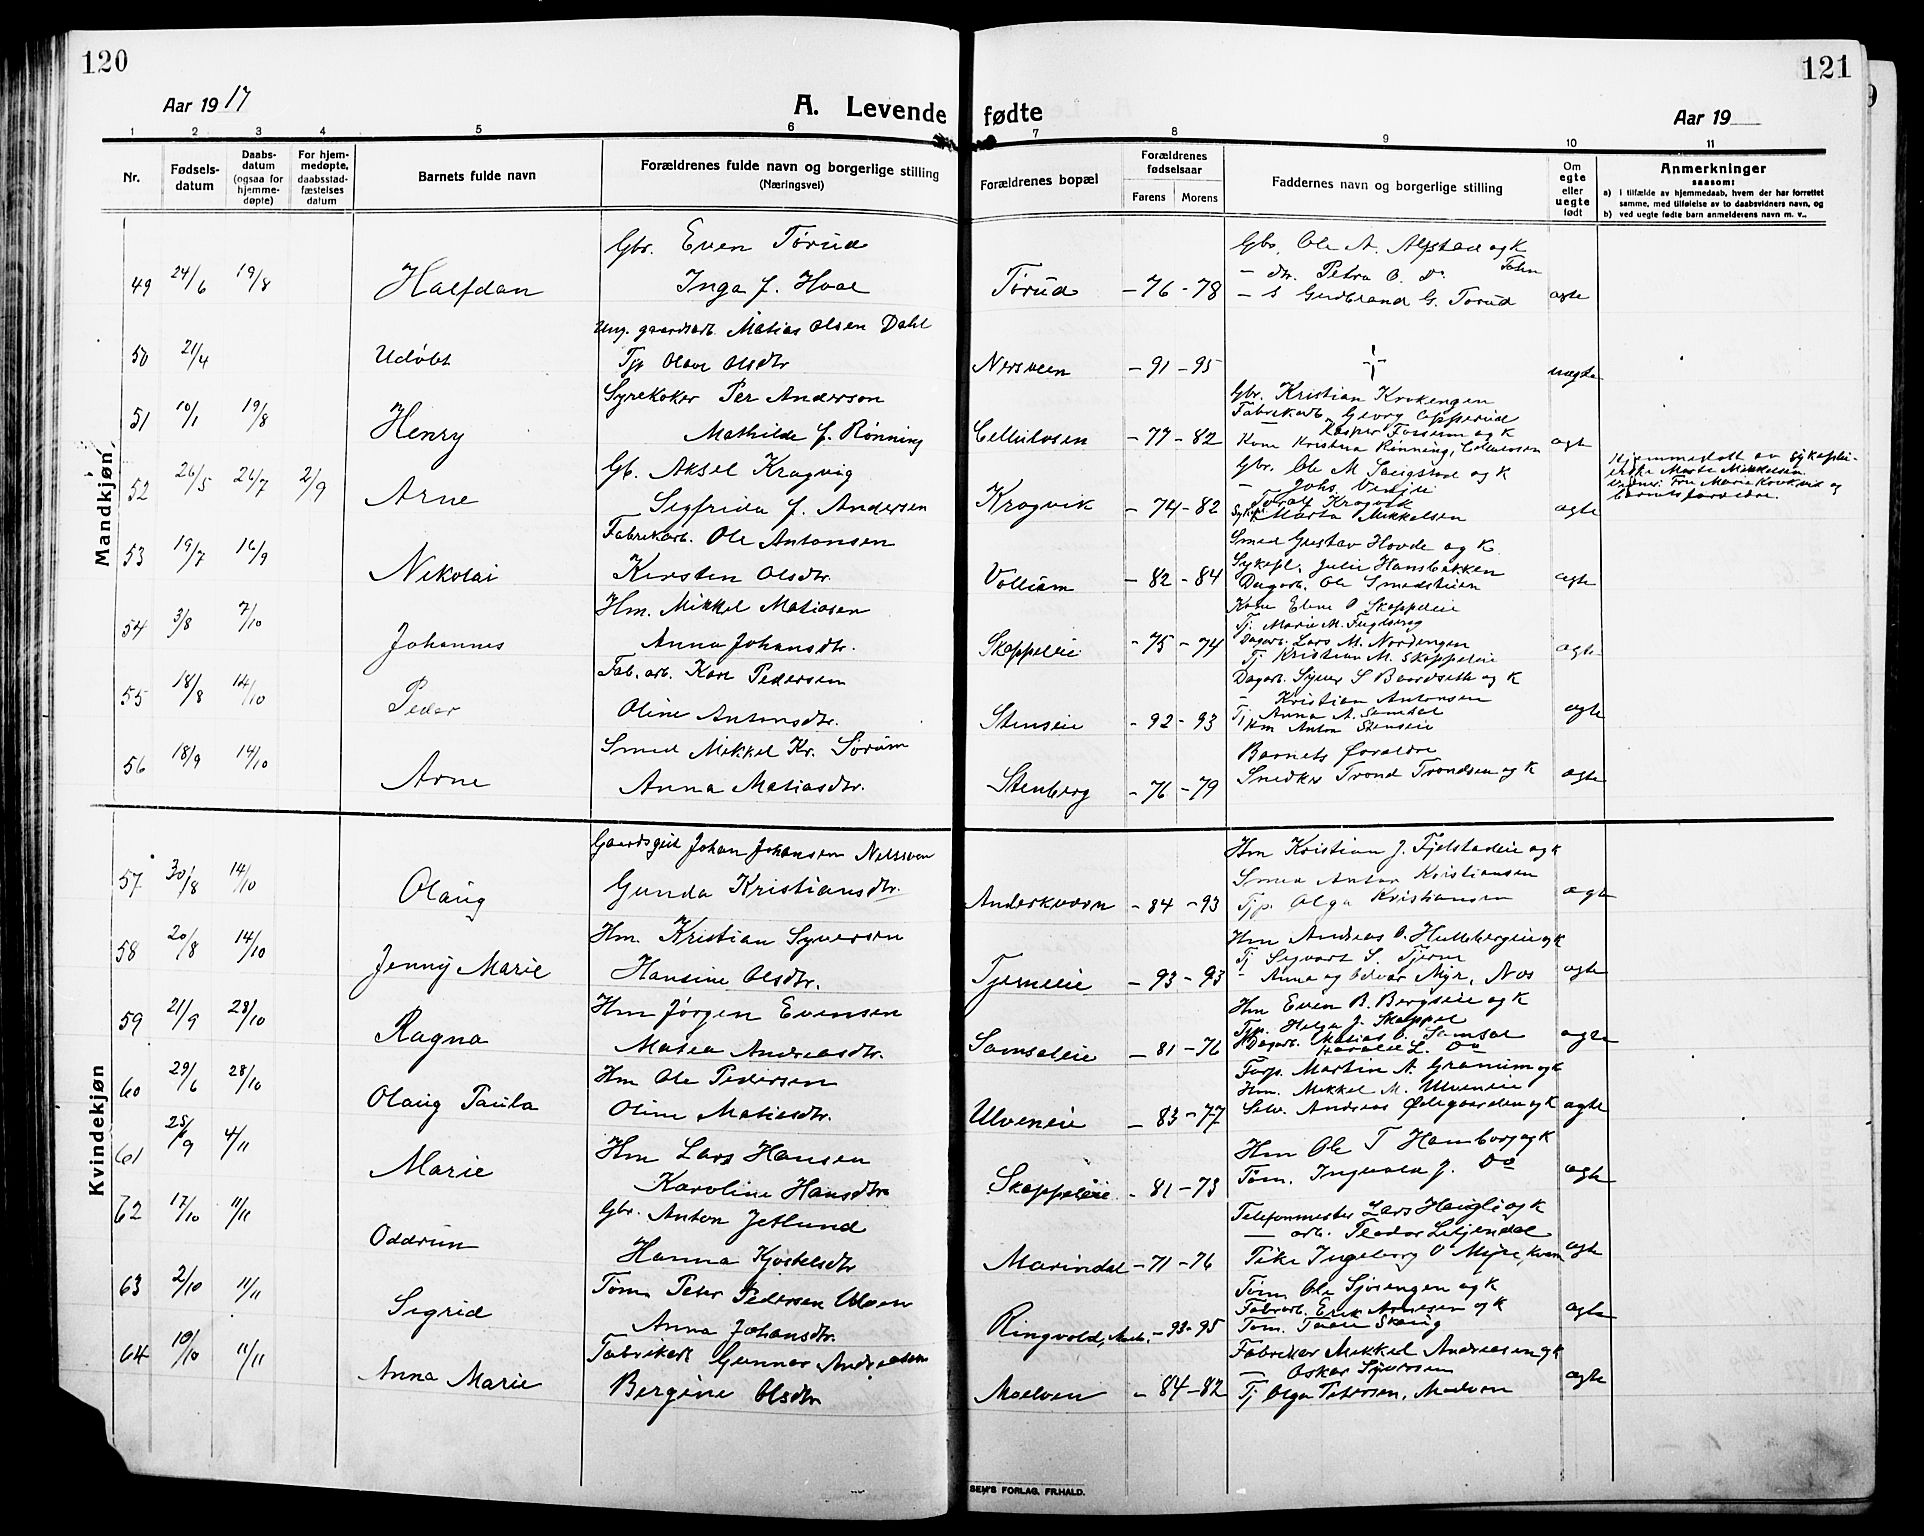 120
121
Aar 1917
A. Levende fødte
Aar 19
1 2 3 4 5 6 7 8 9 10 11
Nr.
Fødsels-
datum
Daabs-
datum
(ogsaa for
hjemme-
døpte)
For hjem-
medøpte,
daabsstad-
fæstelses
datum
Barnets fulde navn
Forældrenes fulde navn og borgerlige stilling
(Næringsvei)
Forældrenes bopæl
Forældrenes
fødselsaar
Farens Morens
Faddernes navn og borgerlige stilling
Om
egte
eller
uegte
født
Anmerkninger
saasom:
a) i tilfælde av hjemmedaab, hvem der har forrettet
samme, med tilføielse av to daabsvidners navn, og
b) ved uegte fødte barn anmelderens navn m. v..
Mandkjøn
49 24/6 19/8 Halfdan
Gbr. Even Tørud
Inga f. Hoel
Tørud - 76 - 78
Gbr. Ole A. Alpstad og k
- dr. Petra O. Do
- s Gudbrand G. Tørud
ægte
50 21/4 Udøbt
Ung. gaardsarb. Matias Olsen Dahl
Tjp Olave Olsdtr
Nersveen - 91 - 95
uægte
51 10/1 19/8 Henry
Syrekoker Per Anderson
Mathilde f. Rønning
Cellulosen - 77 - 82
Gbr. Kristian Krokengen
Fabrikarb. Georg Opperud
Kasper Fossum og k
Kone Kristina Rønning, Cellulosen
ægt
52 26/5 26/7 2/9 Arne
Gb. Aksel Kragvig
Sigfrida f. Andersen
Kragvik - 74 - 82
Gbr. Ole M. Seigstad og k
- Johs.
Toralf Kragvik
Sykepl. Marta Mikkelsen
ægte
Hjemmedøbt av sykeplei-
erske Marte Mikkelsen.
Fru Marie Krokvik og
barnets forældre.
53 19/7 16/9 Nikolai
Fabrikarb. Ole Antonsen
Kirsten Olsdtr.
Vollum - 82 - 84
Smed Gustav Hovde og K.
Sykepl. Julie Hansbakken
Dagarb. Ole Smedstuen
ægte
54 3/8 7/10 Johannes
Hm. Mikkel Matiasen
Anna Johansdtr.
Skappeleie - 75 - 74
Kone Elene O Skappeleie
Tj. Marie M. Fuglseng
Dagarb. Lars M. Nordengen
Tj Kristian M. Skappeleie
ægte
55 18/8 14/10 Peder
Fab. arb. Karl Pedersen
Oline Antonsdtr.
Stenseie - 92 - 93
Dagarb. Syver S Baardseth og K
- Kristian Antonsen
Tj Anna A. Samdal
Hm Anton Stenseie
ægte
56 18/9 14/10 Arne
Smed Mikkel Kr. Sørum
Anna Matiasdtr.
Stenberg - 76 - 79
Barnets Foraldre
Snedker Trond Trondsen og K
ægte
Kvindekjøn
57 30/8 14/10 Olaug
Gaardsgut Johan Johansen Nersveen
Gunda Kristiansdtr.
Anderkværn - 84 - 93
Hm Kristian J. Fjelstadeie og k
Smed Anton Kristiansen
Tjp. Olga Kristiansen
ægte
58 20/8 14/10 Jenny Marie
Hm. Kristian Syversen
Hansine Olsdtr.
Tjerneie - 93 - 93
Hm Andreas O. Hullebergeie og k
Tj Sigvart S. Tjerne
- Anna og Odvar Myr, Nos
ægte
59 21/9 28/10 Ragna
Hm Jørgen Evensen
Matea Andreasdtr.
Samsaleie - 81 - 76
Hm Even B. Bergseie og K
Tjp. Helga J. Skappel
Dagarb. Matias O. Samsal
L. Do
ægte
60 29/6 28/10 Olaug Paula
Hm Ole Pedersen
Oline Matiasdtr.
Ulveneie - 83 - 77
Forp. Martin A. Granum og k
Hm. Mikkel M. Ulveneie
Selv. Andreas Ødegaarden og k
ægte
61 25/9 4/11 Marie
Hm Lars Hansen
Karoline Hansdtr
Skappeleie. - 81 - 73
Hm Ole T Hamborg og k
Tøm. Ingvald J. Do
ægte
62 17/10 11/11 Oddrun
Gbr. Anton Jetlund
Hanna Kjøstelsdtr
Marindal - 71 - 76
Telefonmester Lars Haugli og k
- arb. Teodor Litjendal
Pike Ingeborg O Myre, Kvam
ægte
63 2/10 11/11 Sigrid
Tøm. Peter Pedersen Ulven
Anna Johansdtr.
Ringvold, - 93 - 95
Tøm Ole Sjøsengen og k
Fabrarb. Erik Arnesen og k
Tøm. Skaug
ægte
64 10/10 11/11 Anna Marie
Fabrikarb Gunnar Andreasen
Bergine Olsdtr
Moelven - 84 - 82
Fabrikar Mikkel Andreasen og k
- Oskar Syversen
Tj Olga Petersen, Moelven
ægte
SEN'S FORLAG, FR.HALD.